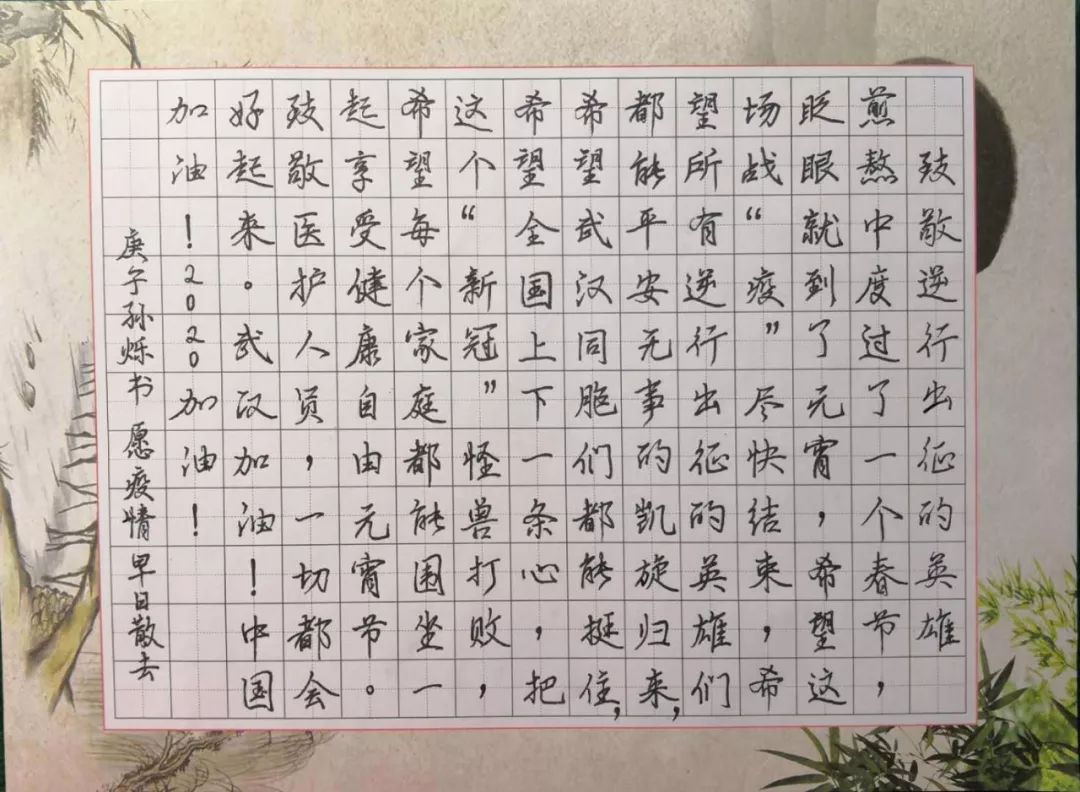 致敬逆行出征的英雄
煎熬中度过了一个春节，
眨眼就到了元宵，希望这
场战“疫”尽快结束，希
望所有逆行出征的英雄们
都能平安无事的凯旋归来，
希望武汉同胞们都能挺住，
希望全国上下一条心，把
这个“新冠”怪兽打败，
希望每个家庭都能围坐一
起享受健康自由元宵节。
致敬医护人员，一切都会
好起来。武汉加油！中国
加油！2020加油！
庚子孙烁书 愿疫情早日散去